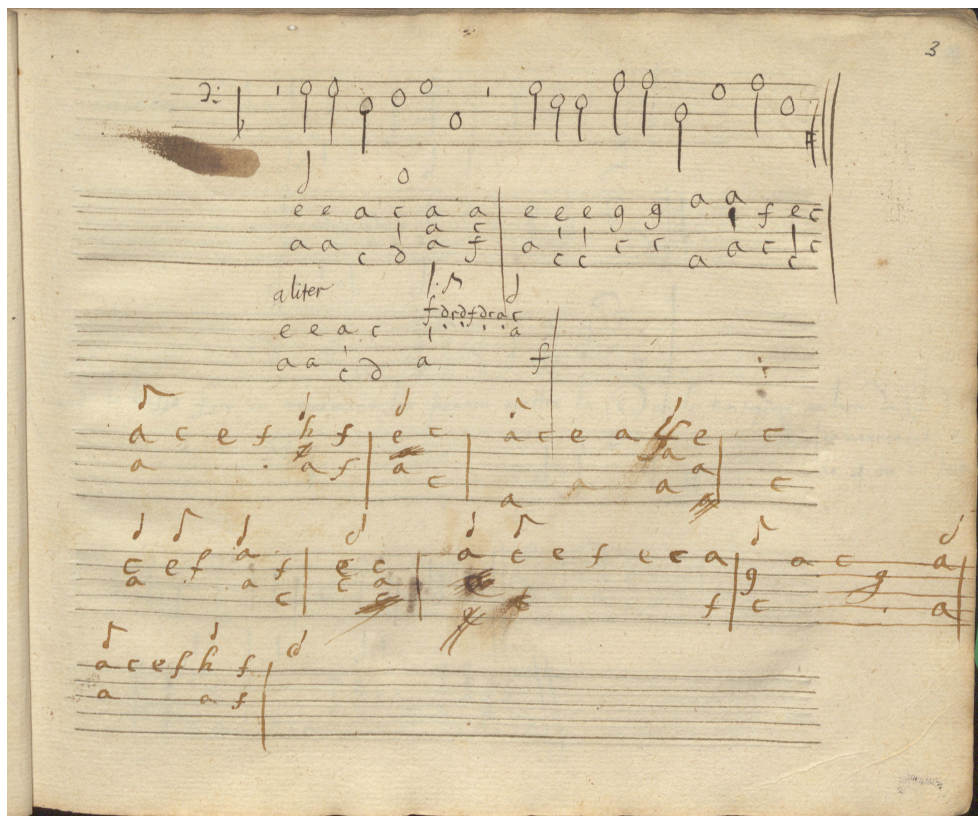 3
e e a c a a e e e g g a a f e c
a c
a a c d a f a c c c c a a c c c
aliter
f d c d f d c a c
e e a c a
a a c d a f
a c e f h f e c a c e a f e c
a a f a c a a a a c
c e f a f e c a c e f e c a g a c g a
a a c c a f c a
a c e f h f
a a f